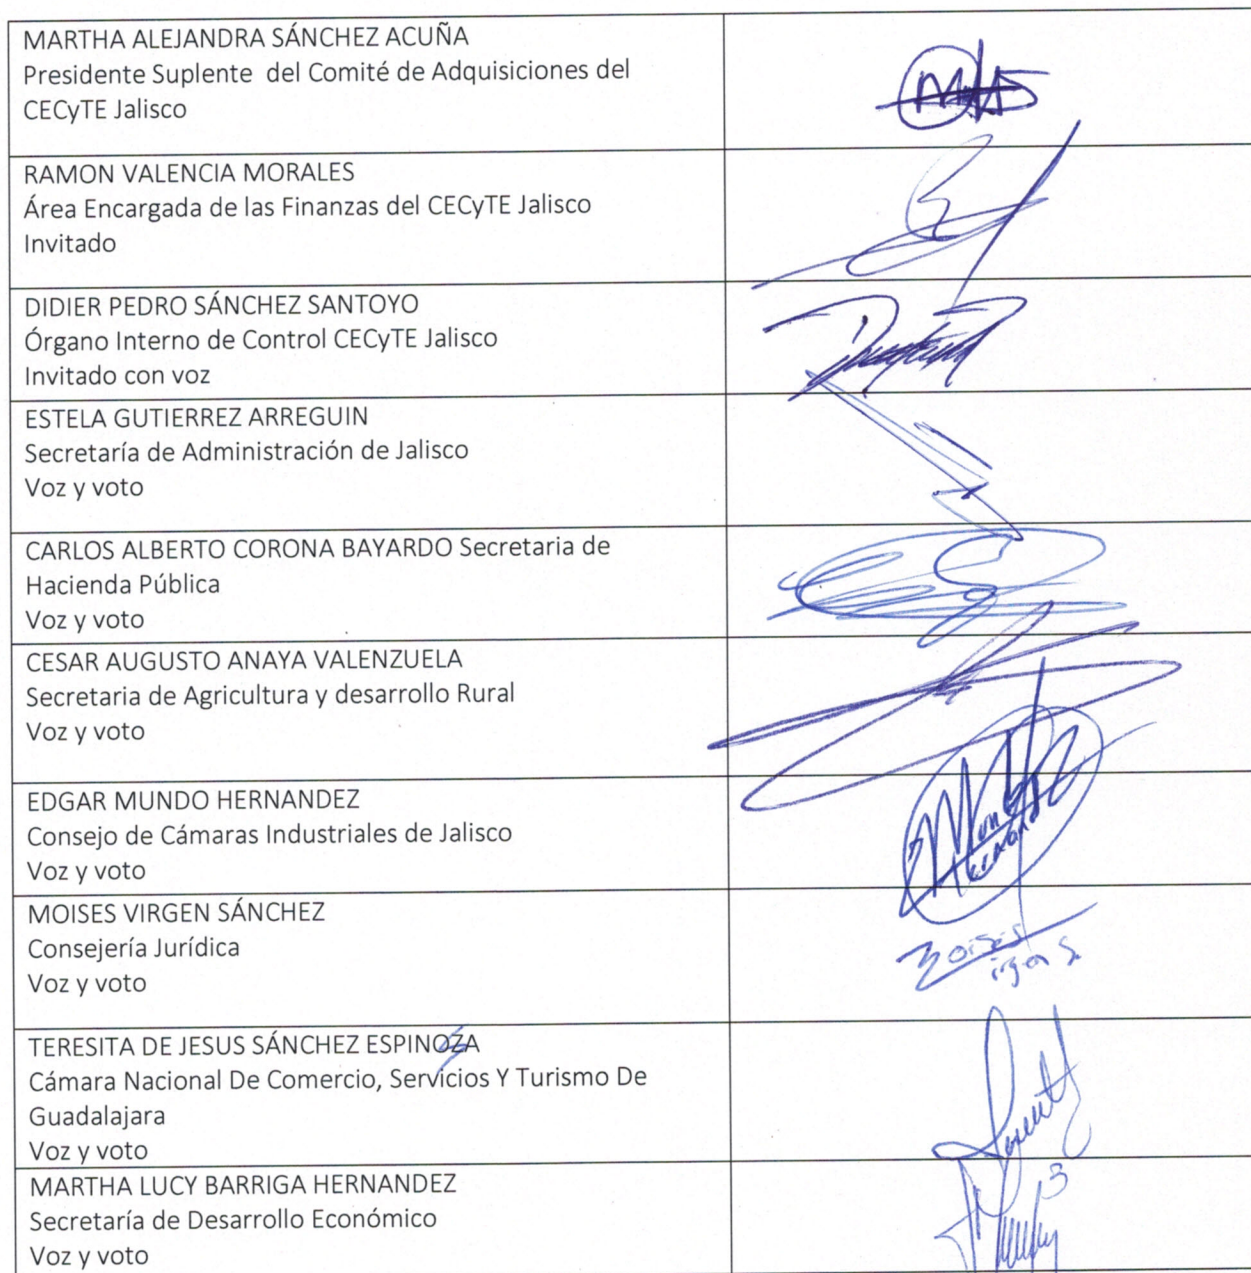 MARTHA ALEJANDRA SÁNCHEZ ACUÑA
Presidente Suplente del Comité de Adquisiciones del
CECyTE Jalisco
RAMON VALENCIA MORALES
Área Encargada de las Finanzas del CECyTE Jalisco
Invitado
DIDIER PEDRO SÁNCHEZ SANTOYO
Órgano Interno de Control CECyTE Jalisco
Invitado con voz
ESTELA GUTIERREZ ARREGUIN
Secretaría de Administración de Jalisco
Voz y voto
CARLOS ALBERTO CORONA BAYARDO Secretaria de
Hacienda Pública
Voz y voto
CESAR AUGUSTO ANAYA VALENZUELA
Secretaria de Agricultura y desarrollo Rural
Voz y voto
EDGAR MUNDO HERNANDEZ
Consejo de Cámaras Industriales de Jalisco
Voz y voto
MOISES VIRGEN SÁNCHEZ
Consejería Jurídica
Voz y voto
TERESITA DE JESUS SÁNCHEZ ESPINOZA
Cámara Nacional De Comercio, Servicios Y Turismo De
Guadalajara
Voz y voto
MARTHA LUCY BARRIGA HERNANDEZ
Secretaría de Desarrollo Económico
Voz y voto